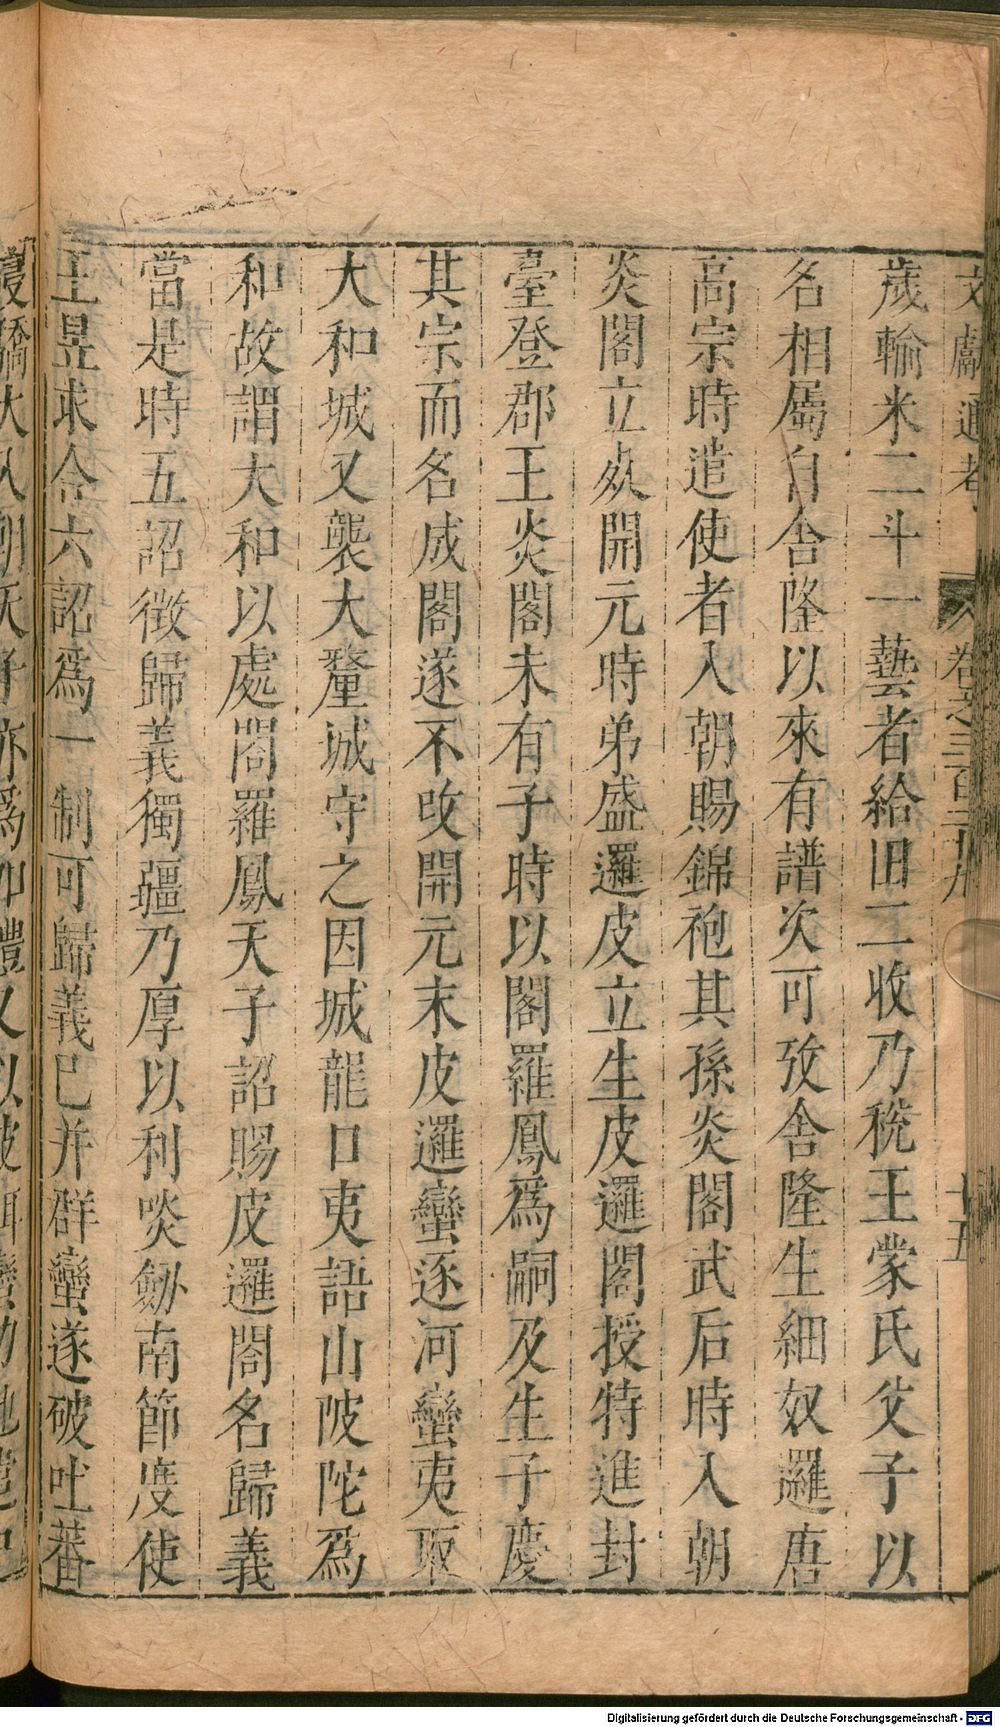 文獻通考 卷之三百二十九 十五
歲輸米二斗一藝者給田二收乃稅王蒙氏父子以
名相屬自舍隆以來有譜次可攷舍隆生細奴邏唐
高宗時遣使者入朝賜錦袍其孫炎閣武后時入朝
炎閣立炎開元時弟盛邏皮立生皮邏閣授特進封
臺登郡王炎閣未有子時以閣羅鳳爲嗣及生子慶
其宗而名成閣遂不攺開元末皮邏蠻逐河蠻夷取
大和城又襲大釐城守之因城龍口夷語山陂陀爲
和故謂大和以處閣羅鳳天子詔賜皮邏閣名歸義
當是時五詔徵歸義獨彊乃厚以利啖劒南節度使
王昱求合六詔爲一制可歸義已并群蠻遂破吐蕃